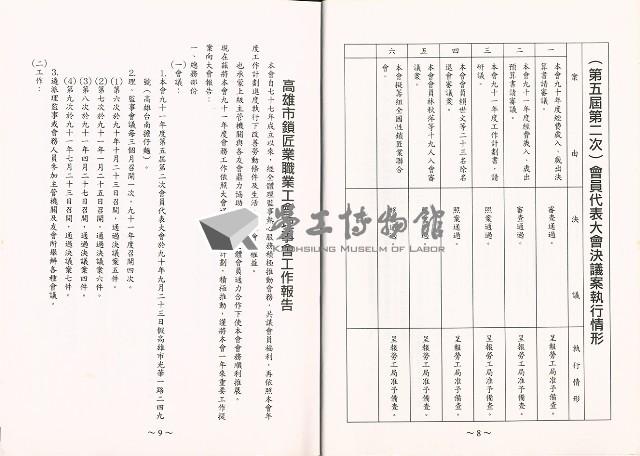 (第五屆第二次)會員代表大會決議案執行情形
案由
決議
執行情形
一
本會九十年度經費歲入、歲出決算書請審議。
審查通過。
呈報勞工局准予備查。
二
本會九十一年度經費歲入、歲出預算書請審議。
審查通過。
呈報勞工局准予備查。
三
本會九十一年度工作計劃書,請研議。
照案通過。
呈報勞工局准予備查。
四
本會會員賴世文等二十三名除名退會審議案。
照案通過。
呈報勞工局准予備查。
五
本會會員林秋萍等十九人入會審議案。
呈報勞工局准予備查。
六
本會擬籌組全國性鎖匠業聯合會。
通過。
呈報勞工局准予備查。
~8~
高雄市鎖匠業職業工會 事會工作報告
本會自七十七年成立以來,經全體理監事熱心服務積極推動會務,共議會員福利,再依照本會年
度工作計劃進度執行下改善勞動條件及生活 會 權益。
也承蒙上級主管機關與各友會鼎力協助 體會員通力合作下使本會會務順利推展。
現在茲將本會九十一年度會務工作依照大會 計劃,積極推動,謹將本會一年來重要工作提
案向大會報告:
一、總務部份
(一)會議:
1.本會九十一年度第五屆第二次會員代表大會於九十年九月二十三日假高雄市光華一路二四九
號(高雄台南擔仔麵)。
2.理、監事會議每三個月召開一次,九十一年度召開四次。
(1)第六次於九十年十月二十三日召開,通過決議案五件。
(2)第七次於九十一年一月二十五日召開,通過決議案六件。
(3)第八次於九十一年四月二十三日召開,通過決議案四件。
(4)第九次於九十一年七月二十三日召開,通過決議案七件。
3.遴派理監事或會務人員參加主管機關及友會所舉辦各種會議。
(二)工作:
~9~
勞工博物館
KAOHSIUNG MUSEUM OF LABOR